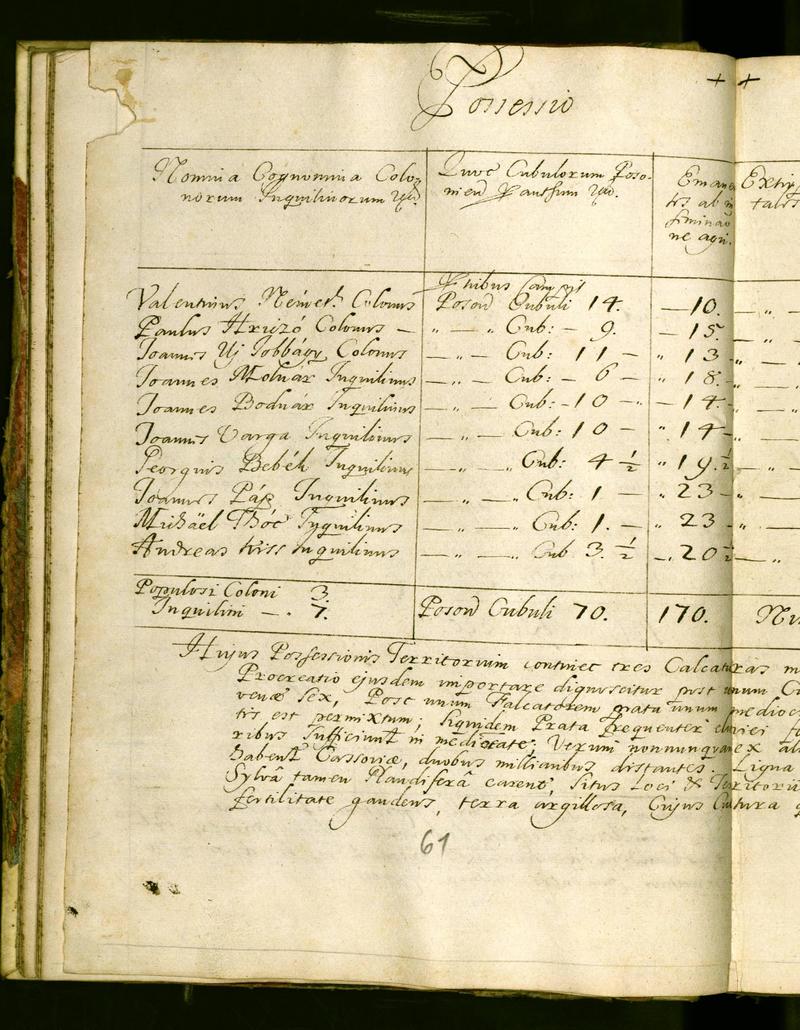 Possessio
+ +
Nomina Cognomina Colo-
norum Inquilinorum
Quot Cubulorum Poso-
nien
Eman
tis ab
semina
ne agri.
Extir
talis
Valentinus Németh Colonus Poson Cubuli 14. — 10.
Paulus Hriczó Colonus — „ — „ Cub: — 9. — 15.
Joannes Uj Jobbágy Colonus — „ — Cub: 11 — „ 13
Joannes Molnár Inquilinus — „ — Cub: — 6 — „ 18.
Joannes Bodnár Inquilinus — „ — Cub: — 10 — „ — 14.
Joannes Varga Inquilinus — „ — Cub: 10 — „ 14
Georgius Bebék Inquilinus — „ — „ Cub: 4 ½ „ 19. ½
Joannes Páp Inquilinus — „ — „ Cub: 1 — „ 23
Michäel Thóc Inquilinus — „ — „ Cub: 1. — „ 23
Andreas Kiss Inquilinus — „ — „ Cub 3. ½ — „ 20 ½
Populosi Coloni 3.
Inquilini — . 7. Poson Cubuli 70. 170.
Hujus Possessionis Territorium continet tres Calcaturas
Procreatio ejusdem importare dignoscitur post unum
venæ sex, Post unum Falcatorem prata unum medioc
tis est permixtum; siquidem Prata frequenter
ribus sufficiunt in medietate; Verum nonnunquam ex
habent Cassoviæ, duobus milliaribus distantes. Ligna
Sylvâ tamen Glandiferâ carent, Situs Loci & Territorii
fertilitate gaudens, terra argillosa, Cujus Cultura
61